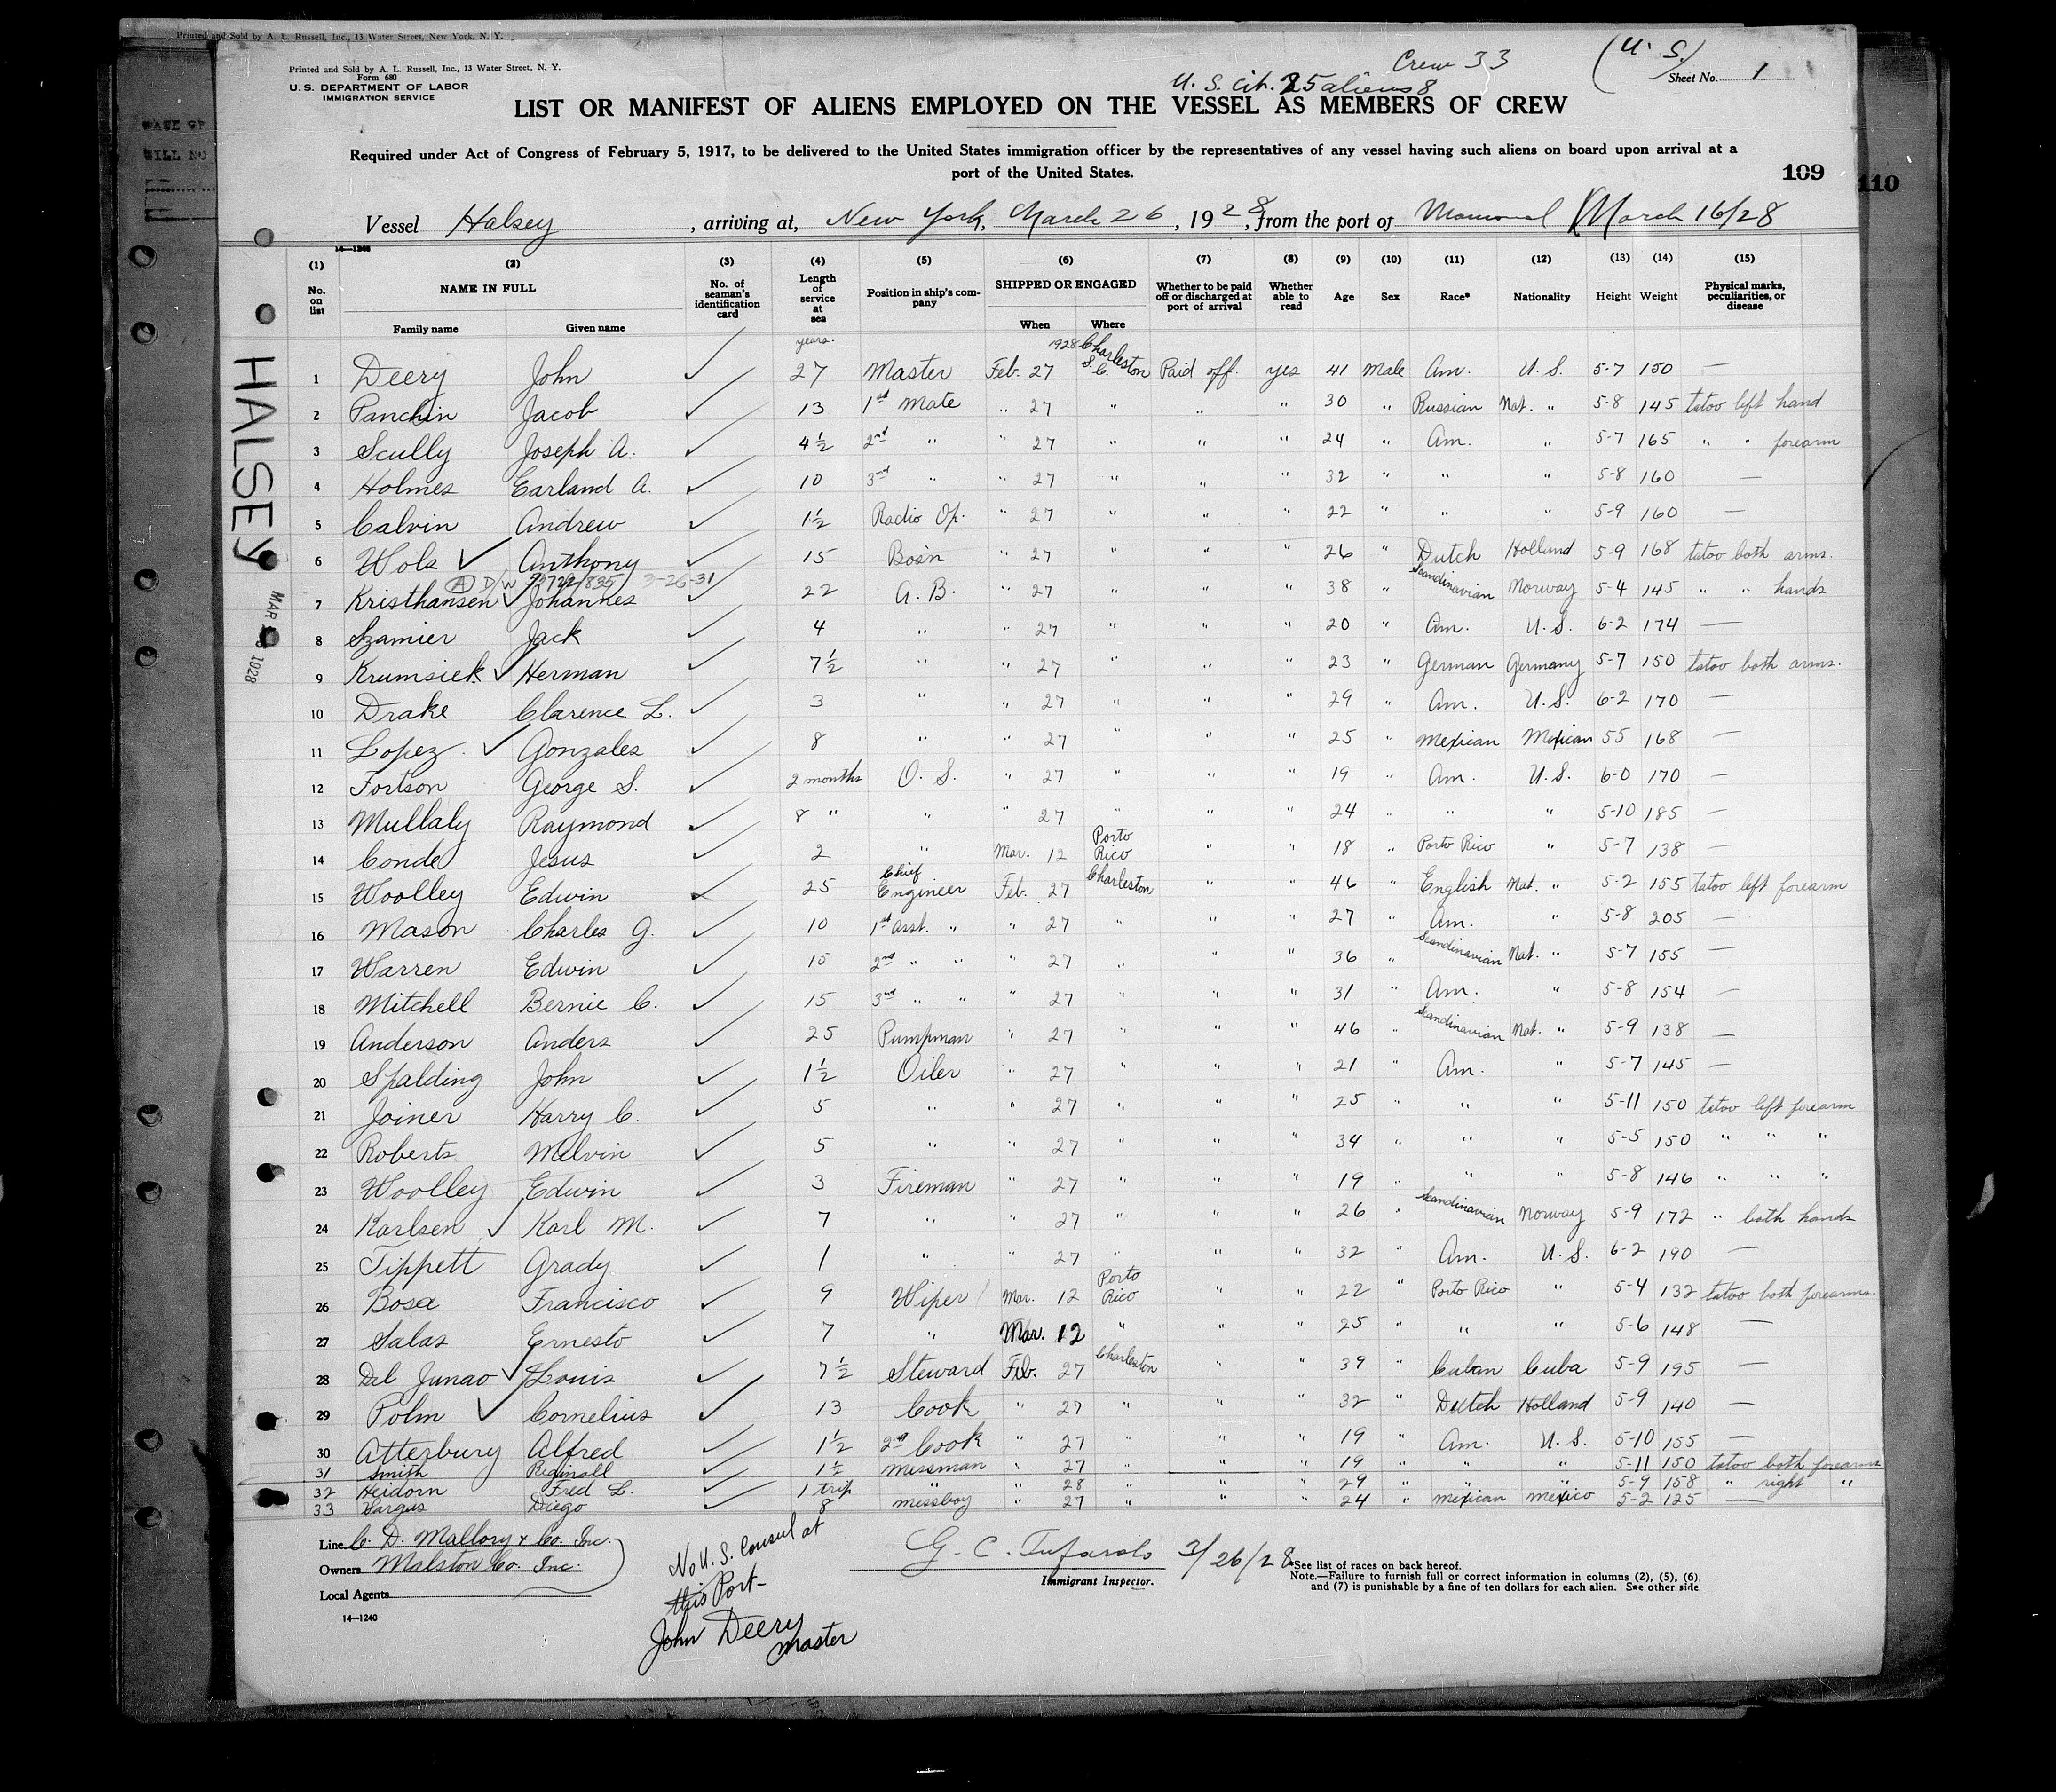 Printed and Sold by A. L. Russell, Inc., 13 Water Street, New York, N. Y.
Printed and Sold by A. L. Russell, Inc., 13 Water Street, N. Y.
Form 680
U. S. DEPARTMENT OF LABOR
IMMIGRATION SERVICE
Crew 33
(U. S.)
Sheet No. 1
U. S. Cit. 25 aliens 8
LIST OR MANIFEST OF ALIENS EMPLOYED ON THE VESSEL AS MEMBERS OF CREW
Required under Act of Congress of February 5, 1917, to be delivered to the United States immigration officer by the representatives of any vessel having such aliens on board upon arrival at a
port of the United States.
109
110
Vessel Halsey, arriving at, New York, March 26, 1928, from the port of March 16/28
(1) (2) (3) (4) (5) (6) (7) (8) (9) (10) (11) (12) (13) (14) (15)
No. on list NAME IN FULL Family name Given name No. of seaman's identification card Length of service at sea Position in ship's company SHIPPED OR ENGAGED When Where Whether to be paid off or discharged at port of arrival Whether able to read Age Sex Race* Nationality Height Weight Physical marks, peculiarities, or disease
years. 1928
1 Deery John ✓ 27 Master Feb. 27 Charleston S. C. Paid off. yes 41 Male Am. U. S. 5-7 150 —
2 Panchin Jacob ✓ 13 1st Mate " 27 " " " 30 " Russian Nat. " 5-8 145 tatoo left hand
3 Scully Joseph A. ✓ 4½ 2nd " " 27 " " " 24 " Am. " 5-7 165 " " forearm
4 Holmes Earland A. ✓ 10 3rd " " 27 " " " 32 " " " 5-8 160 —
5 Calvin Andrew ✓ 1½ Radio Op. " 27 " " " 22 " " " 5-9 160 —
6 Wols ✓ Anthony ✓ 15 Bosn " 27 " " " 26 " Dutch Holland 5-9 168 tatoo both arms.
3-26-31
7 Kristhansen ✓ Johannes ✓ 22 A. B. " 27 " " " 38 " Scandinavian Norway 5-4 145 " " hands
8 Szamier Jack ✓ 4 " " 27 " " " 20 " Am. U. S. 6-2 174 —
9 Krumsiek ✓ Herman ✓ 7½ " " 27 " " " 23 " German Germany 5-7 150 tatoo both arms.
10 Drake Clarence L. ✓ 3 " " 27 " " " 29 " Am. U. S. 6-2 170 —
11 Lopez ✓ Gonzales ✓ 8 " " 27 " " " 25 " Mexican Mexican 55 168 —
12 Fortson George S. ✓ 2 months O. S. " 27 " " " 19 " Am. U. S. 6-0 170 —
13 Mullaly Raymond ✓ 8 " " " 27 " " " 24 " " " 5-10 185 —
14 Conde Jesus ✓ 2 " Mar. 12 Porto Rico " " 18 " Porto Rico " 5-7 138 —
15 Woolley Edwin ✓ 25 Chief Engineer Feb. 27 Charleston " " 46 " English Nat. " 5-2 155 tatoo left forearm
16 Mason Charles G. ✓ 10 1st asst. " " 27 " " " 27 " Am. " 5-8 205 —
17 Warren Edwin ✓ 15 2nd " " " 27 " " " 36 " Scandinavian Nat. " 5-7 155 —
18 Mitchell Bernie C. ✓ 15 3rd " " " 27 " " " 31 " Am. " 5-8 154 —
19 Anderson Anders ✓ 25 Pumpman " 27 " " " 46 " Scandinavian Nat. " 5-9 138 —
20 Spalding John ✓ 1½ Oiler " 27 " " " 21 " Am. " 5-7 145 —
21 Joiner Harry C. ✓ 5 " " 27 " " " 25 " " " 5-11 150 tatoo left forearm
22 Roberts Melvin ✓ 5 " " 27 " " " 34 " " " 5-5 150 " " "
23 Woolley Edwin ✓ 3 Fireman " 27 " " " 19 " " " 5-8 146 " " "
24 Karlsen ✓ Karl M. ✓ 7 " " 27 " " " 26 " Scandinavian Norway 5-9 172 " both hands
25 Tippett Grady ✓ 1 " " 27 " " " 32 " Am. U. S. 6-2 190 —
26 Bosa Francisco ✓ 9 Wiper Mar. 12 Porto Rico " " 22 " Porto Rico " 5-4 132 tatoo both forearms.
27 Salas Ernesto ✓ 7 " Mar. 12 " " " 25 " " " 5-6 148 —
28 Del Junao ✓ Louis ✓ 7½ Steward Feb. 27 Charleston " " 39 " Cuban Cuba 5-9 195 —
29 Polm ✓ Cornelius ✓ 13 Cook " 27 " " " 32 " Dutch Holland 5-9 140 —
30 Atterbury Alfred ✓ 1½ 2nd Cook " 27 " " " 19 " Am. U. S. 5-10 155 —
31 Smith Reginall ✓ 1½ messman " 27 " " " 19 " " " 5-11 150 tatoo both forearm
32 Heidorn Fred L. ✓ 1 trip " " 28 " " " 29 " " " 5-9 158 " right "
33 Vargus Diego ✓ 8 messboy " 27 " " " 24 " Mexican Mexico 5-2 125 —
HALSEY
1928
Line C. D. Mallory & Co. Inc.
Owners Malston Co. Inc.
Local Agents
14—1240
No U. S. Consul at
this Port-
John Deery
Master
G. C. Tufarolo 3/26/28
Immigrant Inspector.
*See list of races on back hereof.
Note.—Failure to furnish full or correct information in columns (2), (5), (6)
and (7) is punishable by a fine of ten dollars for each alien. See other side